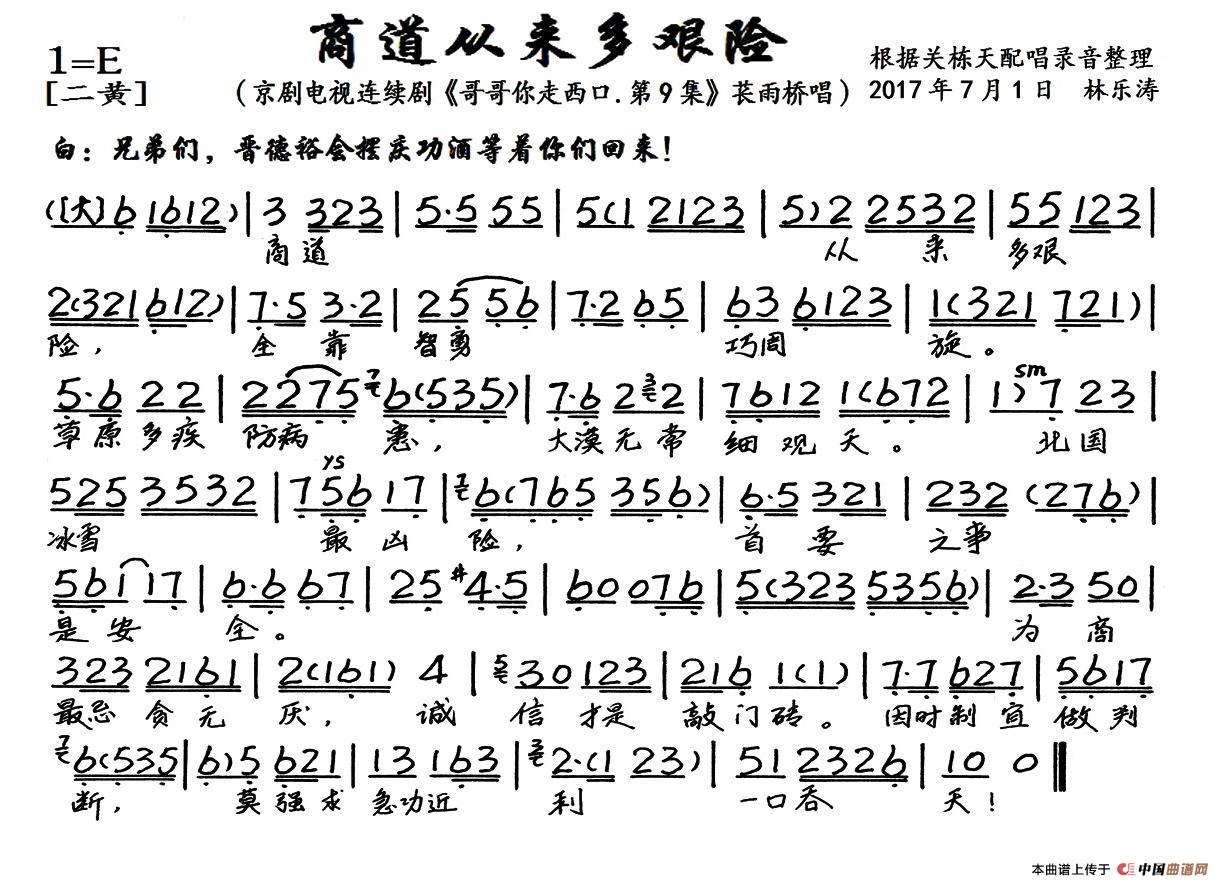 商道从来多艰险
1=E
[二黄]
(京剧电视连续剧《哥哥你走西口.第9集》苌雨桥唱)
根据关栋天配唱录音整理
2017年7月1日 林乐涛
白：兄弟们，晋德裕会摆庆功酒等着你们回来！
(【大】6 1612) | 3 323 | 5·5 55 | 5(1 2123 | 5)2 2532 | 55 123 |
商道 从来 多艰
2(321 612) | 7·5 3·2 | 25 56 | 7·2 65 | 63 6123 | 1(321 721) |
险， 全靠 智勇 巧周 旋。
5·6 22 | 2275 7 6(535) | 7·6 2 3 2 | 7612 1(672 | 1) sm 7 23 |
草原多疾 防病 患， 大漠无常 细观天。 北国
525 3532 | 7 ys 56 17 | 7 6(765 356) | 6·5 321 | 232 (276) |
冰雪 最凶 险， 首要 之事
561 17 | 6·6 67 | 25 #4·5 | 60076 | 5(323 5356) | 2·3 50 |
是安 全。 为商
323 2161 | 2(161) 4 | 5 30 123 | 216 1(1) | 7·7 627 | 5617
最忌贪无 厌， 诚 信才是 敲门砖。 因时制宜 做判
7 6(535 | 6)5 621 | 13 163 | 3 2·(1 23) | 51 2326 | 10 0 ‖
断， 莫强求 急功近 利 一口吞 天！
本曲谱上传于 中国曲谱网